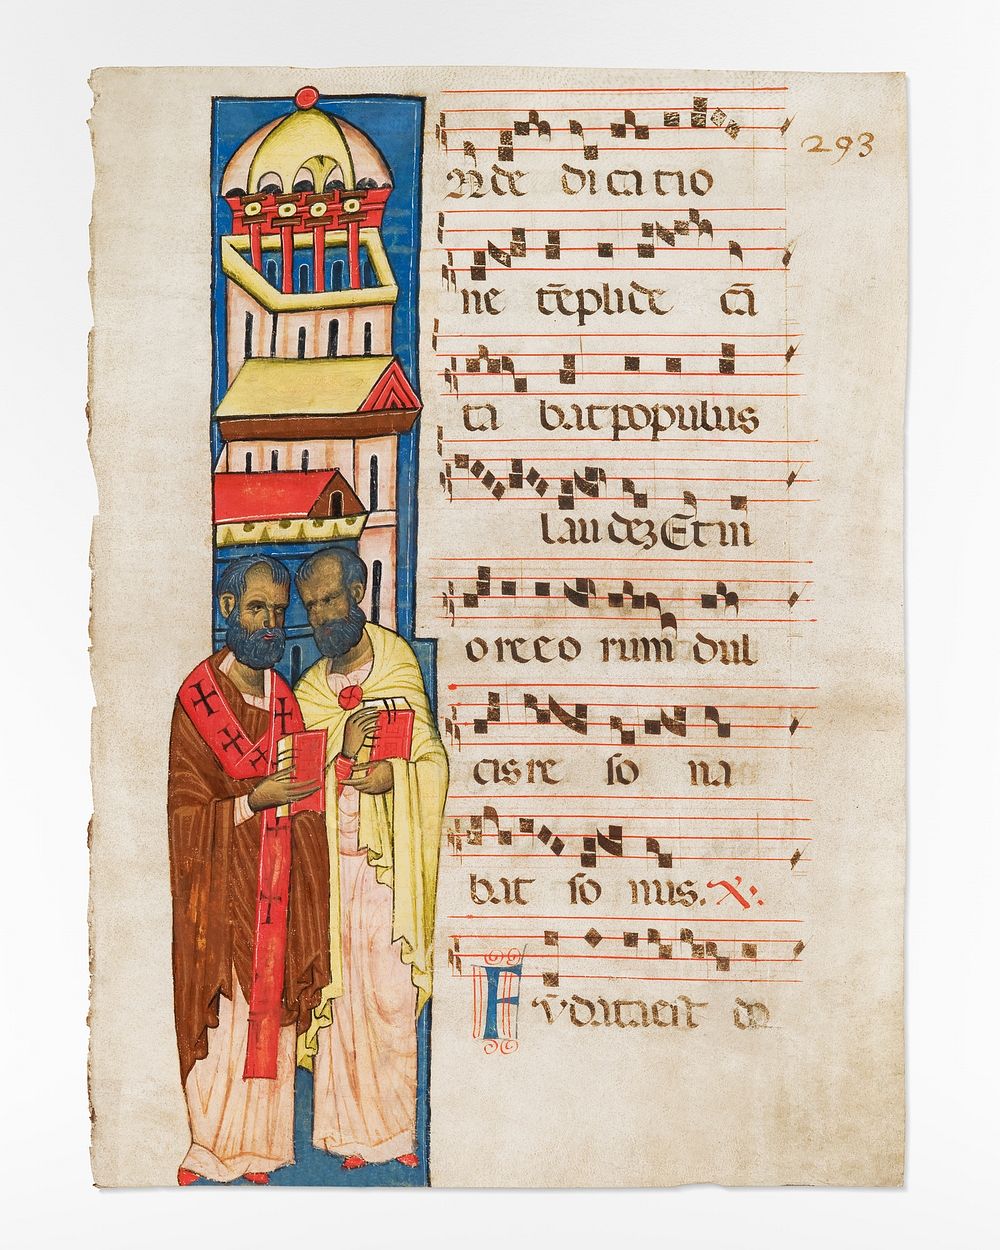 293
N de dicatio
ne tēpli de cā
ta bat populus
laudez Et in
ore eo rum dul
cis re so na
bat so nus. V:
Fūdata est do